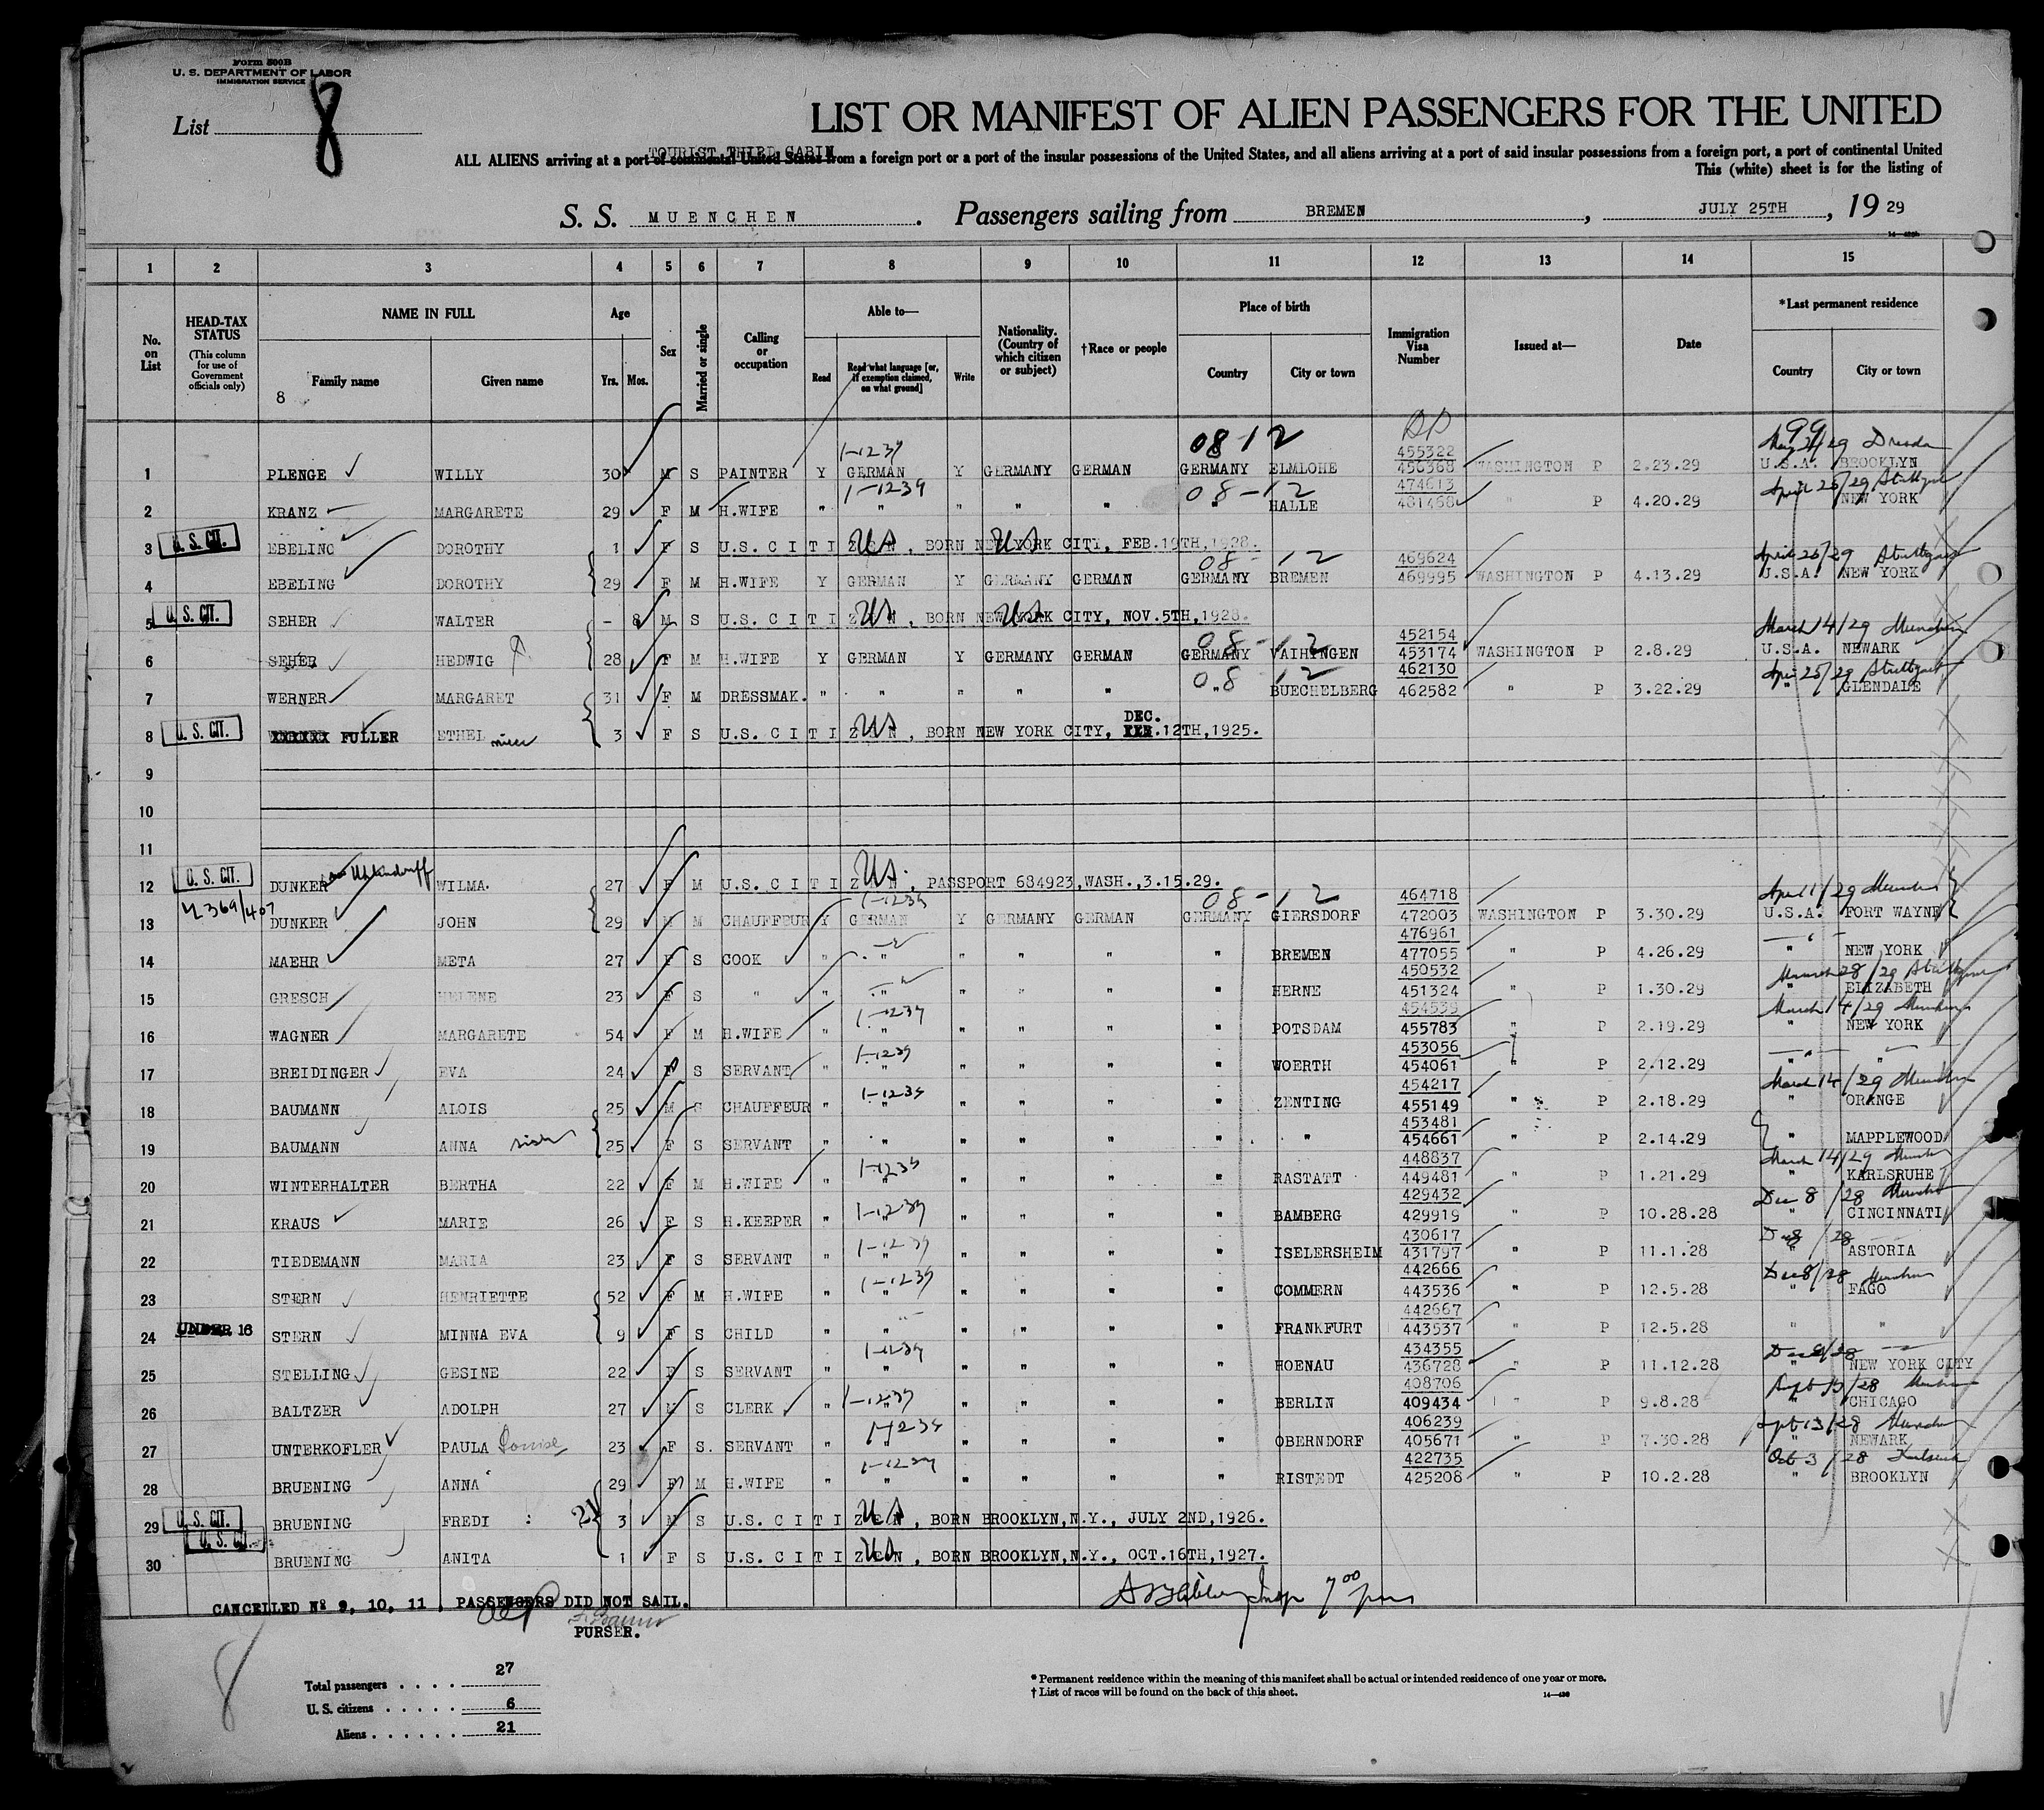 Form 500B
U. S. DEPARTMENT OF LABOR
IMMIGRATION SERVICE
List 8
LIST OR MANIFEST OF ALIEN PASSENGERS FOR THE UNITED
TOURIST THIRD CABIN
ALL ALIENS arriving at a port of continental United States from a foreign port or a port of the insular possessions of the United States, and all aliens arriving at a port of said insular possessions from a foreign port, a port of continental United
This (white) sheet is for the listing of
S. S. MUENCHEN. Passengers sailing from BREMEN, JULY 25TH, 1929
1 2 3 4 5 6 7 8 9 10 11 12 13 14 15
No. on List
HEAD-TAX STATUS (This column for use of Government officials only)
NAME IN FULL Family name Given name
8
Age Yrs. Mos.
Sex
Married or single
Calling or occupation
Able to— Read Read what language [or, if exemption claimed, on what ground] Write
Nationality. (Country of which citizen or subject)
†Race or people
Place of birth Country City or town
Immigration Visa Number
Issued at—
Date
*Last permanent residence Country City or town
1-1239 08-12 455322 99 May 29 Dresden
1 PLENGE WILLY 30 M S PAINTER Y GERMAN Y GERMANY GERMAN GERMANY ELMLOHE 456368 WASHINGTON P 2.23.29 U.S.A. BROOKLYN
1-1239 08-12 474613 April 25/29 Stuttgart
2 KRANZ MARGARETE 29 F M H.WIFE " " " " " " HALLE 481468 " P 4.20.29 " NEW YORK
3 U. S. CIT. EBELING DOROTHY 1 F S U.S. CITIZEN, BORN NEW YORK CITY, FEB.19TH,1928. US US
08-12 469624 April 25/29 Stuttgart
4 EBELING DOROTHY 29 F M H.WIFE Y GERMAN Y GERMANY GERMAN GERMANY BREMEN 469995 WASHINGTON P 4.13.29 U.S.A. NEW YORK
5 U. S. CIT. SEHER WALTER - 8 M S U.S. CITIZEN, BORN NEW YORK CITY, NOV.5TH,1928. US US
08-12 452154 March 14/29 Munchen
6 SEHER HEDWIG 28 F M H.WIFE Y GERMAN Y GERMANY GERMAN GERMANY VAIHINGEN 453174 WASHINGTON P 2.8.29 U.S.A. NEWARK
08-12 462130 Apr 25/29 Stuttgart
7 WERNER MARGARET 31 F M DRESSMAK. " " " " " " BUECHELBERG 462582 " P 3.22.29 " GLENDALE
DEC.
8 U. S. CIT. XXXXXX FULLER ETHEL niece 3 F S U.S. CITIZEN, BORN NEW YORK CITY, .12TH,1925. US
9
10
11
12 U. S. CIT. DUNKER WILMA. 27 F M U.S. CITIZEN, PASSPORT 684923,WASH.,3.15.29. US
1-1239 08-12 464718 April 1/29 Munchen
13 DUNKER JOHN 29 M M CHAUFFEUR Y GERMAN Y GERMANY GERMAN GERMANY GIERSDORF 472003 WASHINGTON P 3.30.29 U.S.A. FORT WAYNE
476961
14 MAEHR META 27 F S COOK " " " " " " BREMEN 477055 " P 4.26.29 " NEW YORK
450532 March 28/29 Stuttgart
15 GRESCH HELENE 23 F S " " " " " " " HERNE 451324 " P 1.30.29 " ELIZABETH
1-1239 454539 March 14/29 Munchen
16 WAGNER MARGARETE 54 F M H.WIFE " " " " " " POTSDAM 455783 " P 2.19.29 " NEW YORK
1-1239 453056
17 BREIDINGER EVA 24 F S SERVANT " " " " " " WOERTH 454061 " P 2.12.29 " "
1-1239 454217 March 14/29 Munchen
18 BAUMANN ALOIS 25 M S CHAUFFEUR " " " " " " ZENTING 455149 " P 2.18.29 " ORANGE
453481
19 BAUMANN ANNA sister 25 F S SERVANT " " " " " " " 454661 " P 2.14.29 " MAPPLEWOOD
1-1239 448837 March 14/29 Munchen
20 WINTERHALTER BERTHA 22 F M H.WIFE " " " " " " RASTATT 449481 " P 1.21.29 " KARLSRUHE
1-1239 429432 Dec 8/28 Munchen
21 KRAUS MARIE 26 F S H.KEEPER " " " " " " BAMBERG 429919 " P 10.28.28 " CINCINNATI
1-1239 430617 Dec 8/28
22 TIEDEMANN MARIA 23 F S SERVANT " " " " " " ISELERSHEIM 431797 " P 11.1.28 " ASTORIA
1-1239 442666 Dec 8/28 Munchen
23 STERN HENRIETTE 52 F M H.WIFE " " " " " " COMMERN 443536 " P 12.5.28 " FAGO
442667
24 UNDER 16 STERN MINNA EVA 9 F S CHILD " " " " " " FRANKFURT 443537 " P 12.5.28 " "
1-1239 434355 Dec 8/28
25 STELLING GESINE 22 F S SERVANT " " " " " " HOENAU 436728 " P 11.12.28 " NEW YORK CITY
1-1239 408706 Sept 13/28 Munchen
26 BALTZER ADOLPH 27 M S CLERK " " " " " " BERLIN 409434 " P 9.8.28 " CHICAGO
1-1239 406239 Sept 13/28 Munchen
27 UNTERKOFLER PAULA Louise 23 F S. SERVANT " " " " " " OBERNDORF 405671 " P 7.30.28 " NEWARK
1-1239 422735 Oct 3/28
28 BRUENING ANNA 29 F M H.WIFE " " " " " " RISTEDT 425208 " P 10.2.28 " BROOKLYN
29 U. S. CIT. BRUENING FREDI : 3 M S U.S. CITIZEN, BORN BROOKLYN,N.Y., JULY 2ND,1926. US
30 U. S. CIT. BRUENING ANITA 1 F S U.S. CITIZEN, BORN BROOKLYN,N.Y., OCT.16TH,1927. US
CANCELLED Nº 9, 10, 11, PASSENGERS DID NOT SAIL.
PURSER.
8
Total passengers . . . . 27
U. S. citizens . . . . . 6
Aliens . . . . . . 21
* Permanent residence within the meaning of this manifest shall be actual or intended residence of one year or more.
† List of races will be found on the back of this sheet.
14—430